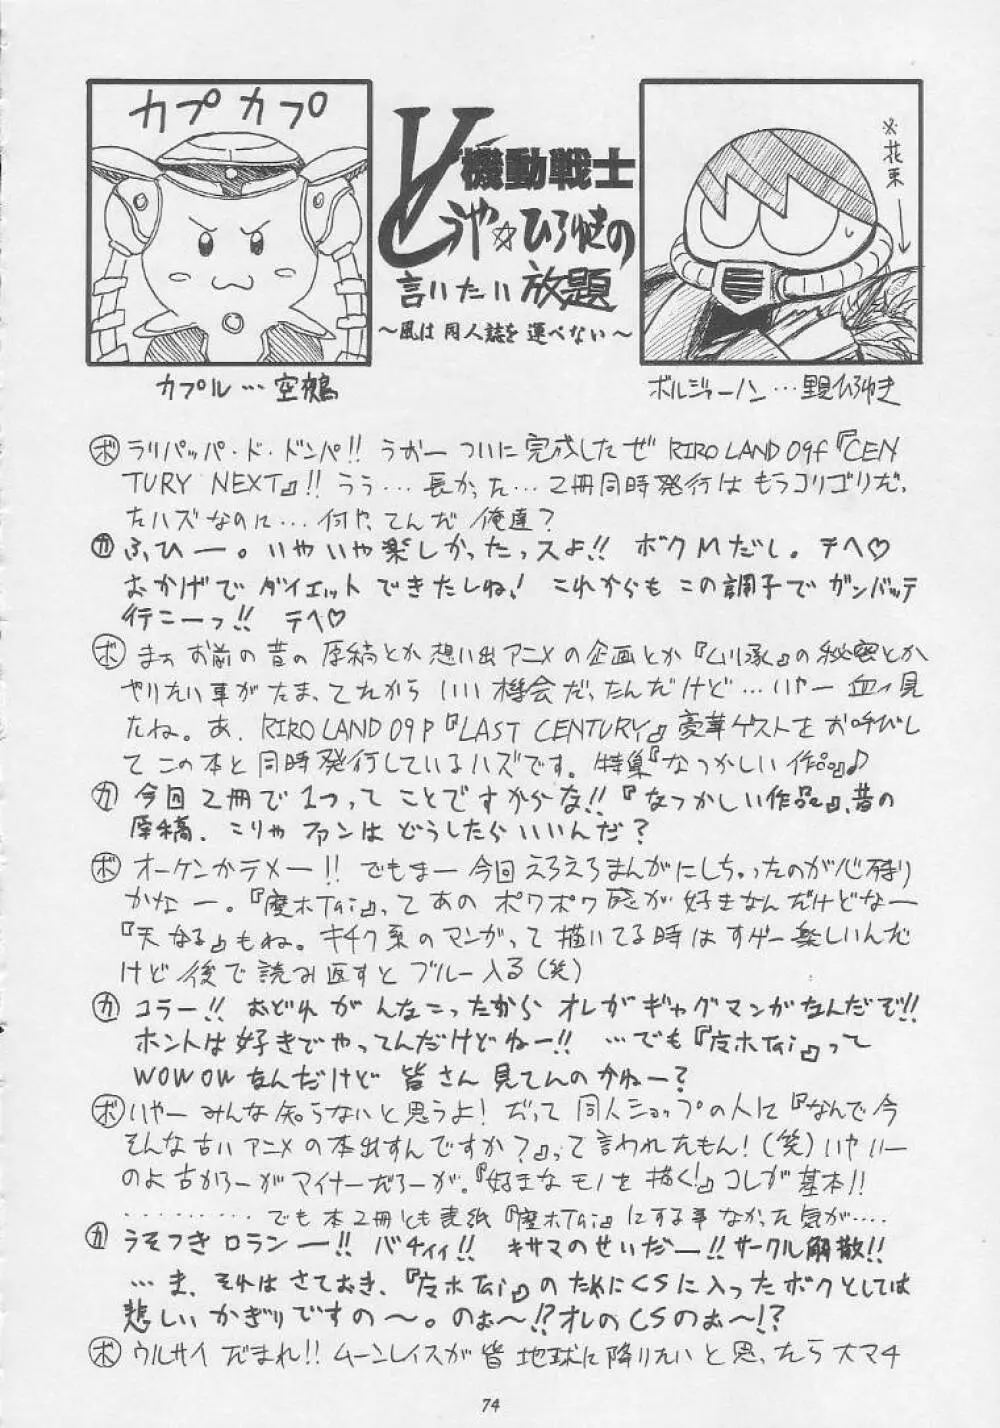 カプカプ
機動戦士
とうや☆ひろゆきの
言いたい放題
〜風は同人誌を運べない〜
※花束
カプル…空鶴
ボルジャーノン…里見ひろゆき
ボ ラリパッパ・ド・ドンパ!! うおーついに完成したぜ RIRO LAND 09f『CEN
TURY NEXT』!! うう…長かった…2冊同時発行はもうコリゴリだっ
たハズなのに…何やってんだ俺達?
カ ふひー。いやいや楽しかったっスよ!! ボクMだし。テヘ♡
おかげでダイエットできたしね! これからもこの調子でガンバッテ
行こーっ!! テヘ♡
ボ まぁお前の昔の原稿とか想い出アニメの企画とか『山川豚』の秘密とか
やりたい事がたまってたからいい機会だったんだけど…いやー血ィ見
たね。あ、RIRO LAND 09P『LAST CENTURY』豪華ゲストをお呼びし
てこの本と同時発行しているハズです。特集『なつかしい作品』♪
カ 今回2冊で1つってことですからな!!『なつかしい作品』、昔の
原稿、こりゃファンはどうしたらいいんだ?
ボ オーケンかテメー!! でもまー今回えろえろまんがにしちゃったのが心残り
かなー。『魔ホTai』ってあのポワポワ感が好きなんだけどなー
『天なる』もね。キチク系のマンガって描いてる時はすげー楽しいんだ
けど後で読み返すとブルー入る(笑)
カ コラー!! おどれがんなこったからオレがギャグマンガなんだぞ!!
ホントは好きでやってんだけどねー!! …でも『魔ホTai』って
WOWOWなんだけど皆さん見てんのかねー?
ボ いやーみんな知らないと思うよ! だって同人ショップの人に『なんで今
そんな古いアニメの本出すんですか?』って言われたもん!(笑)いやいー
のよ古かろーがマイナーだろーが。『好きなモノを描く!』コレが基本!!
………でも本2冊とも表紙『魔ホTai』にする事なかった気が…
カ うそつきロランー!! バチィィ!! キサマのせいだー!! サークル解散!!
…ま、それはさておき、『魔ホTai』のためにCSに入ったボクとしては
悲しいかぎりですの〜。のぉ〜!? オレのCSのぉ〜!?
ボ ウルサイだまれ!! ムーンレイスが皆地球に降りたいと思ったら大マチ
74